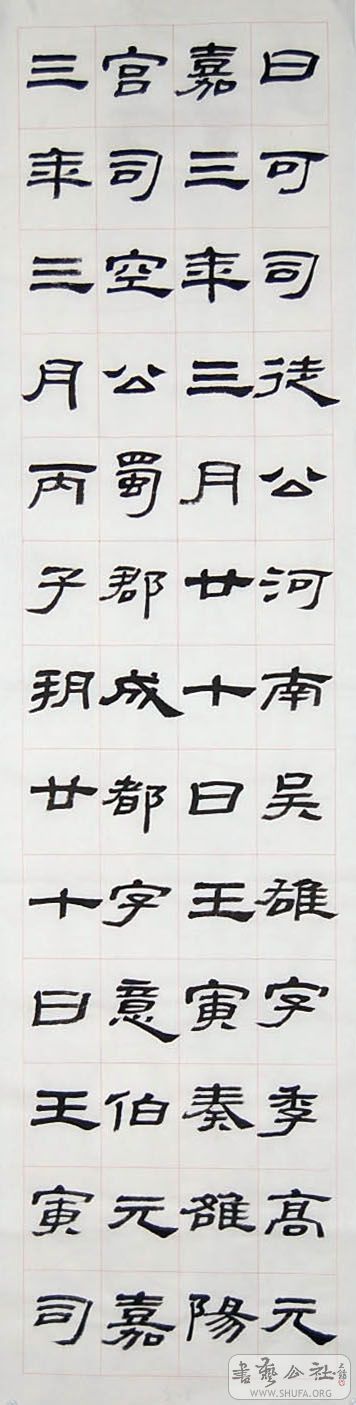 曰可司徒公河南吴雄字季高元
嘉三年三月廿十日王寅奏雒陽
宫司空公蜀郡成都字意伯元嘉
三年三月丙子朔廿十日王寅司
書藝公社
WWW.SHUFA.ORG